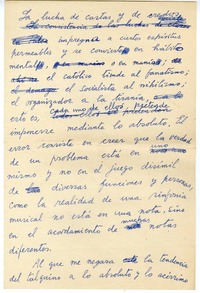 La lucha de castas y de credos
impregna a ciertos espíritus
permeables y se convierte en hábito
mental, o en manía;
el católico tiende al fanatismo;
el socialista al nihilismo;
el organizador a la tiranía,
esto es, cada uno de ellos pretende
imponerse mediante lo absoluto. El
error consiste en creer que la verdad
de un problema está en uno
mismo y no en el juego disímil
de diversas funciones y personas,
como la realidad de una sinfonía
musical no está en una nota, sino
en el acordamiento de muchas notas
diferentes.
Al que me negara la tendencia
del talquino a lo absoluto y lo acérrimo